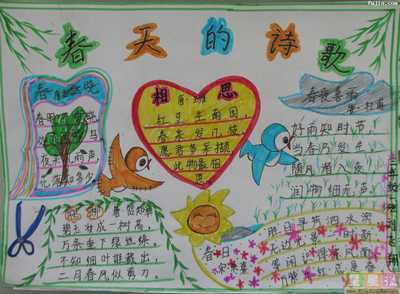 春天的诗歌
相思
红豆生南国,
春来发几枝,
愿君多采撷,
此物最相
思
春夜喜雨
杜甫
好雨知时节,
当春乃发生,
随风潜入夜,
润物细无声,
花落知多少
咏柳 贺知章
碧玉妆成一树高,
万条垂下绿丝绦,
不知细叶谁裁出,
二月春风似剪刀。
春日
胜日寻芳泗水滨
无边光景一时新
等闲识得东风面
万紫千红总是春